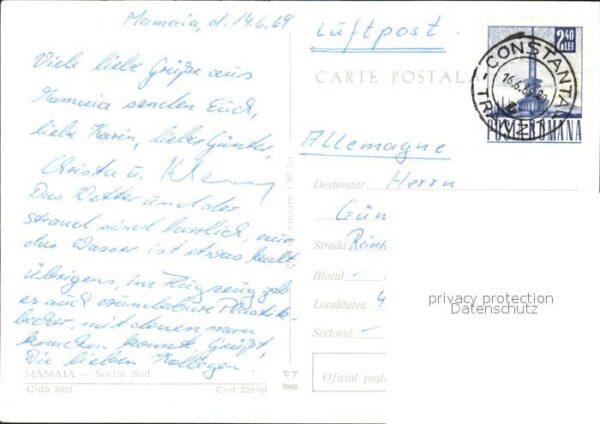 Mamaia, d. 14.6.69
Viele liebe Grüße aus
Mamaia senden Euch,
liebe Karin, lieber Günter,
Christa u.
Das Wetter und der
Strand sind herrlich, nur
das Wasser ist etwas kalt.
Übrigens, im Flugzeug gab
es auch wunderbare Plastik-
becher, mit denen man
knacken konnte. Grüßt
die lieben Kollegen.
MAMAIA — Sector Sud
C-da 3021
Cod 229-68
vînzare 1,90 lei
Luftpost
CARTE POSTALA
2,40
LEI
CONSTANTA
16.6.69
POSTA ROMANA
Allemagne
Destinatar Herrn
Gün
Strada Rein
Blocul –
Localitatea 4
Sectorul –
Oficiul poșt
privacy protection
Datenschutz